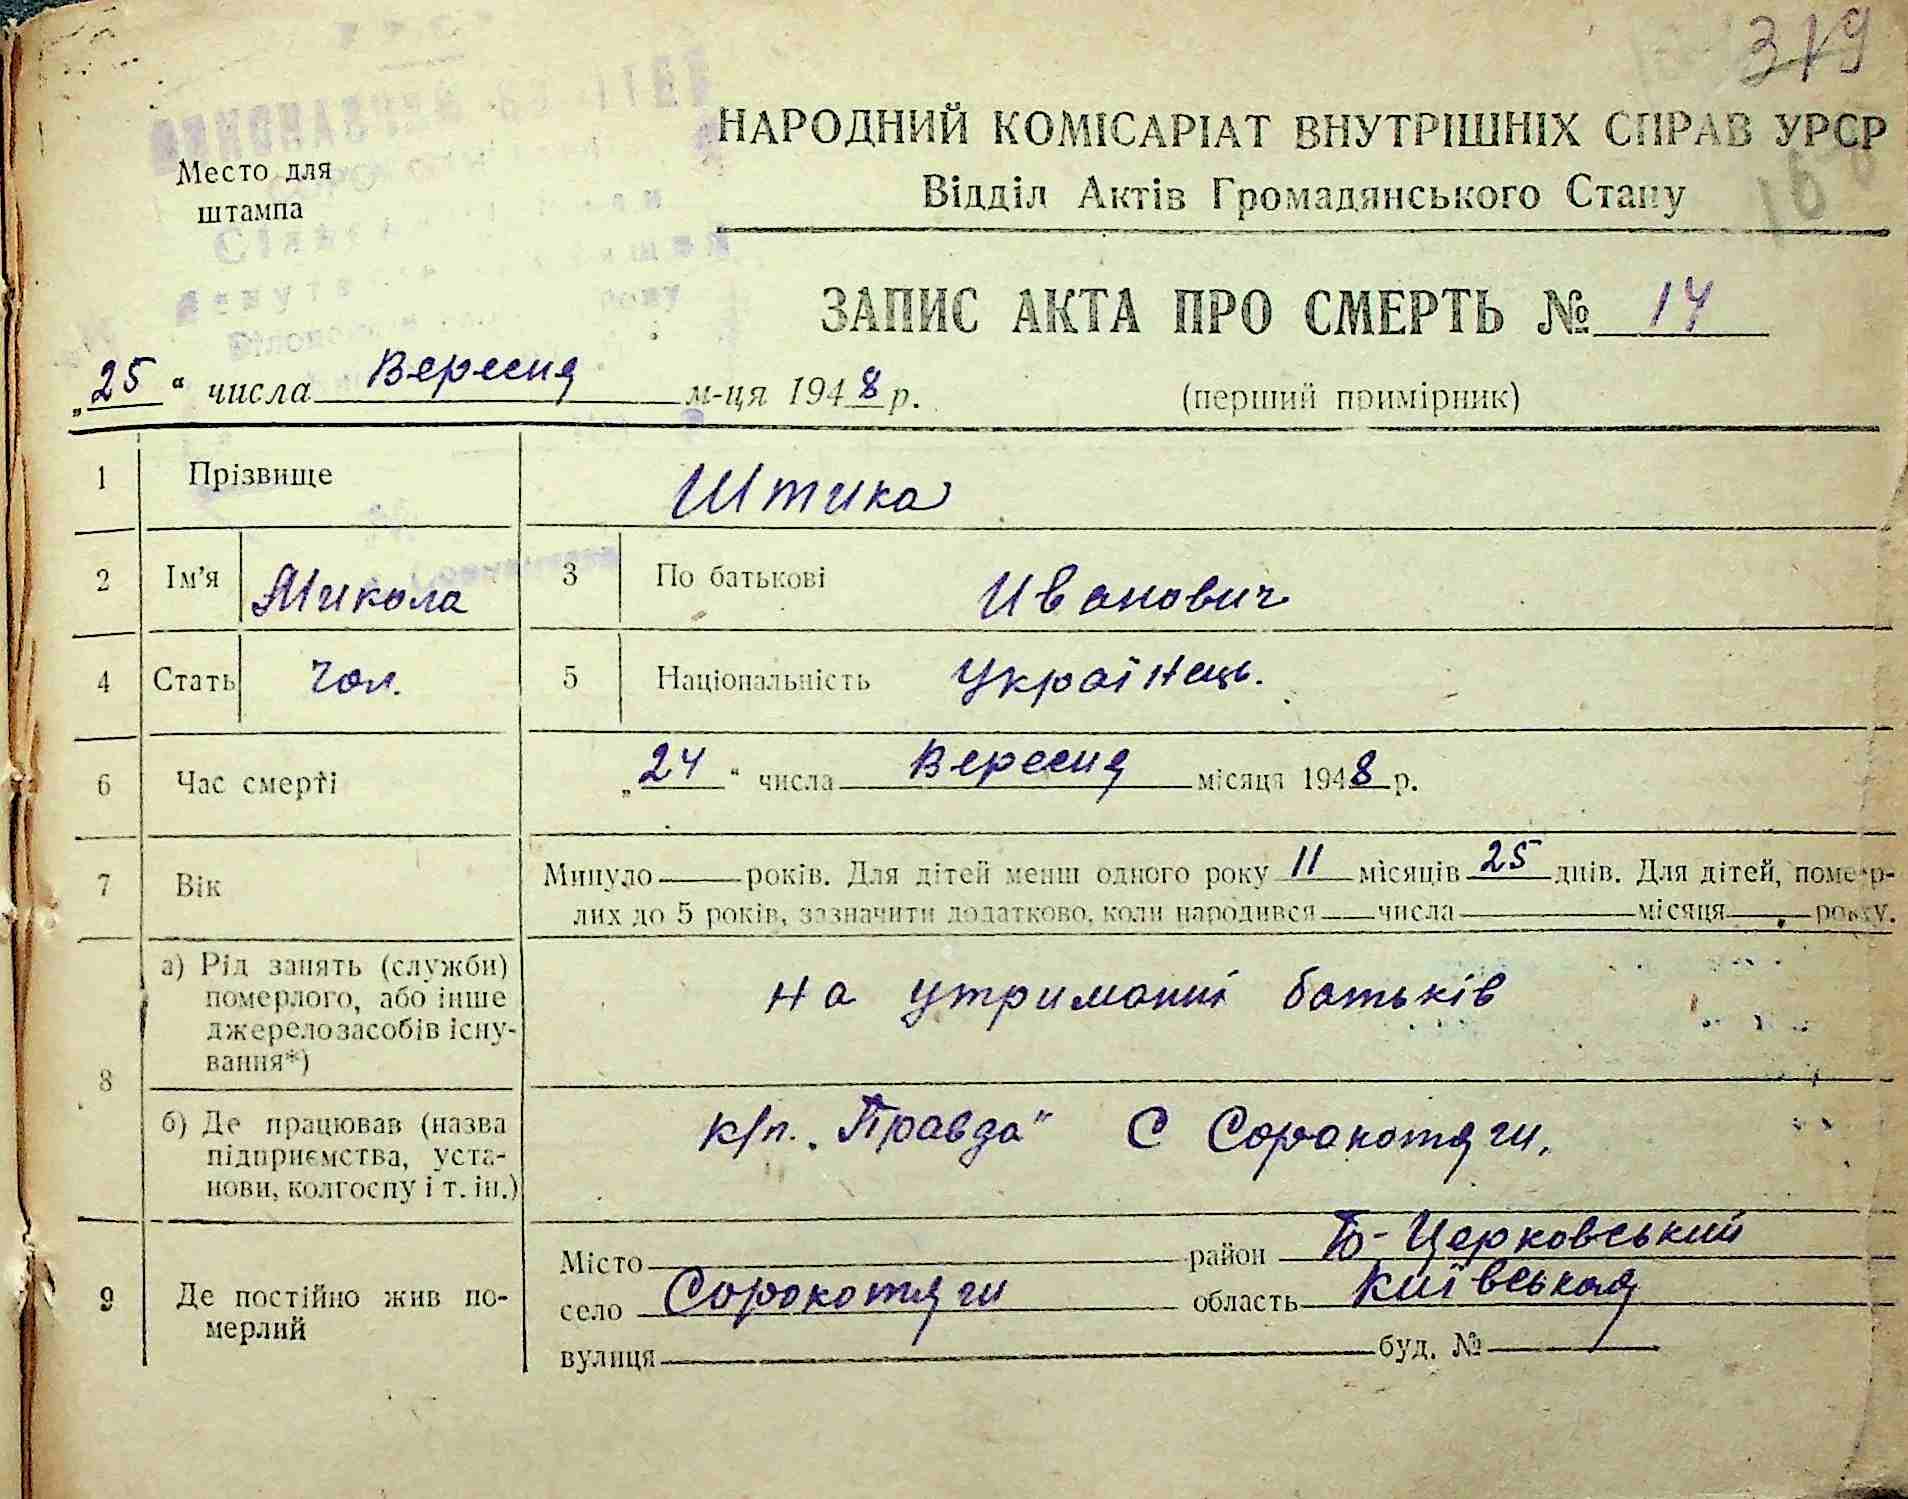 319
НАРОДНИЙ КОМІСАРІАТ ВНУТРІШНІХ СПРАВ УРСР
Відділ Актів Громадянського Стану
Место для
штампа
ЗАПИС АКТА ПРО СМЕРТЬ № 14
„25“ числа Вересня м-ця 1948 р. (перший примірник)
1 Прізвище Штика
2 Ім'я Микола 3 По батькові Иванович
4 Стать Чол. 5 Національність Українець.
6 Час смерті „24“ числа Вересня місяця 1948 р.
7 Вік Минуло — років. Для дітей менш одного року 11 місяців 25 днів. Для дітей, помер-
лих до 5 років, зазначити додатково, коли народився — числа — місяця — року.
8 а) Рід занять (служби)
померлого, або інше
джерело засобів існу-
вання*)
на утриманні батьків
б) Де працював (назва
підприємства, уста-
нови, колгоспу і т. ін.)
к/п. „Правда“ С Сорокотяги.
9 Де постійно жив по-
мерлий
Місто — район Б-Церковський
село Сорокотяги область Київская
вулиця — буд. № —